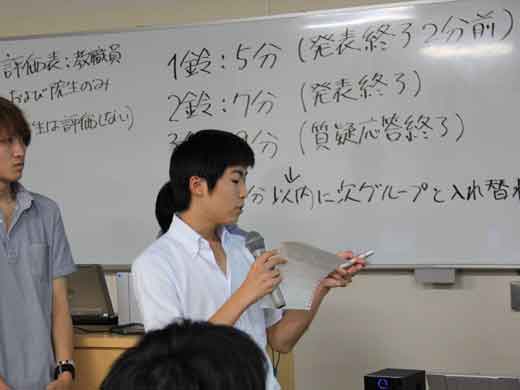 評価表：教職員
および院生のみ
生は評価しない）
1鈴：5分（発表終了2分前）
2鈴：7分（発表終了）
分（質疑応答終了）
↓
分以内に次グループと入れ替